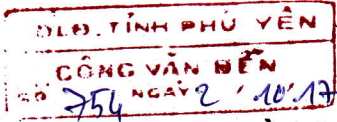 DLĐ. TỈNH PHÚ YÊN
CÔNG VĂN ĐẾN
SỐ 754 NGÀY 2 / 10.17